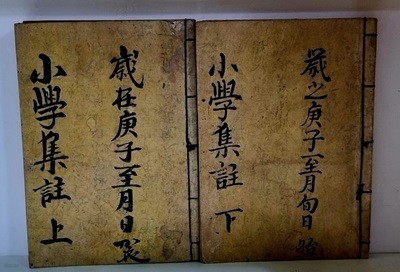 小學集註 上
歲在庚子至月日裝
小學集註 下
歲之庚子至月旬日始